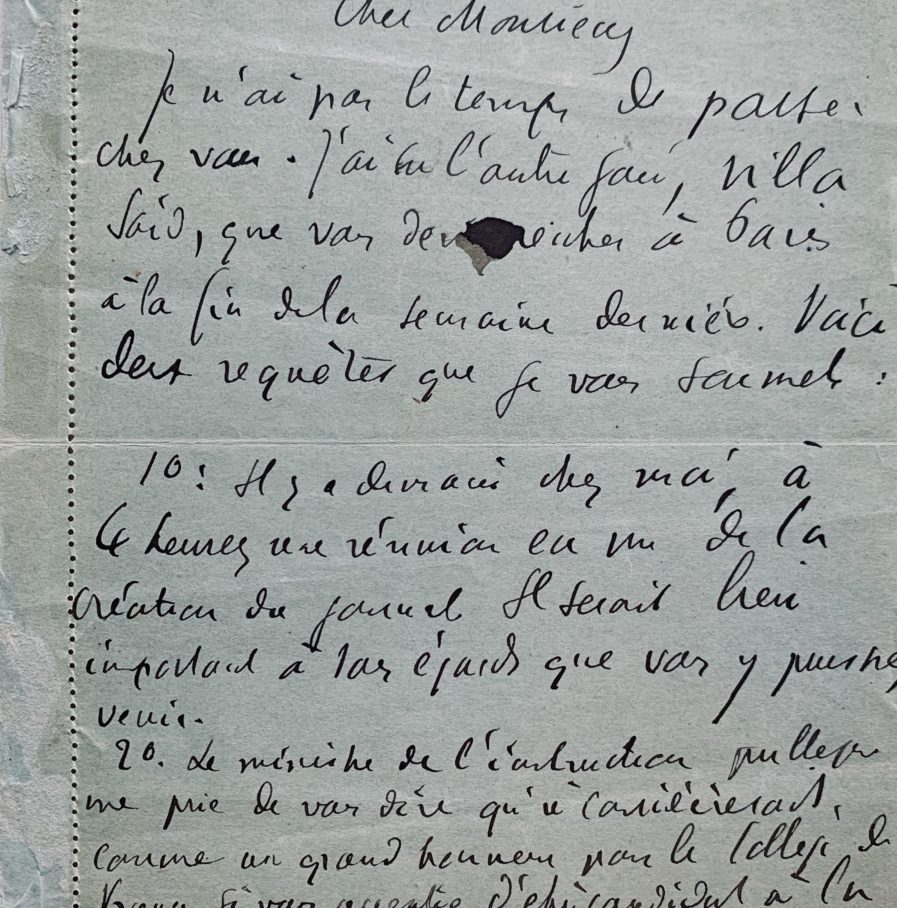 Cher Monsieur
Je n'ai pas le temps de passer
chez vous. J'ai su l'autre jour, villa
Saïd, que vous deviez rentrer à Paris
à la fin de la semaine dernière. Voici
deux requêtes que je vous soumets :
1o: Il y a demain chez moi, à
heures une réunion en vue de la
création du journal. Il serait bien
important à tous égards que vous y puissiez
venir.
2o. Le ministre de l'instruction publique
me prie de vous dire qu'il considèrerait,
comme un grand honneur pour le Collège de
France si vous acceptiez d'être candidat à la